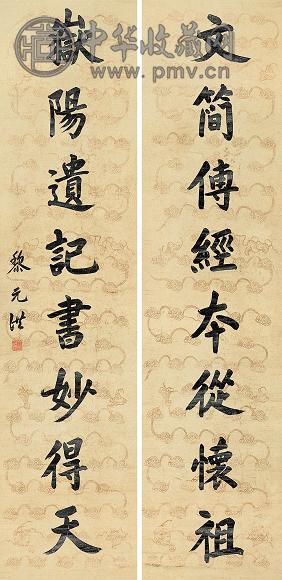 文简傅經本從懷祖
嶽陽遺記書妙得天
黎元洪
中华收藏网
www.pmv.cn